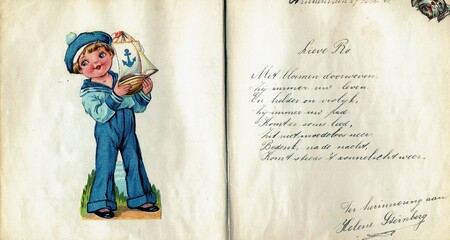 Lieve Ro
Met bloemen doorweven
Zij immer uw leven
En helder en vrolijk,
Zij immer uw pad
Komt er soms leed,
Zit niet moedeloos neer
Bedenk, na de nacht,
Komt steeds 't zonnelicht weer.
Ter herinnering aan
Helene Sternberg